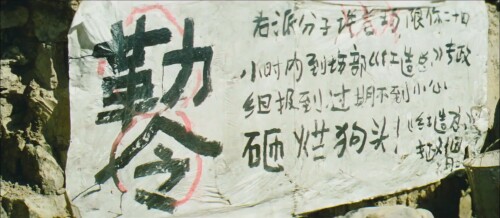 勒令
右派分子许言硕限你二十四
小时内到场部《红造总》专政
组报到过期不到小心
砸烂狗头!《红造总》
专政组